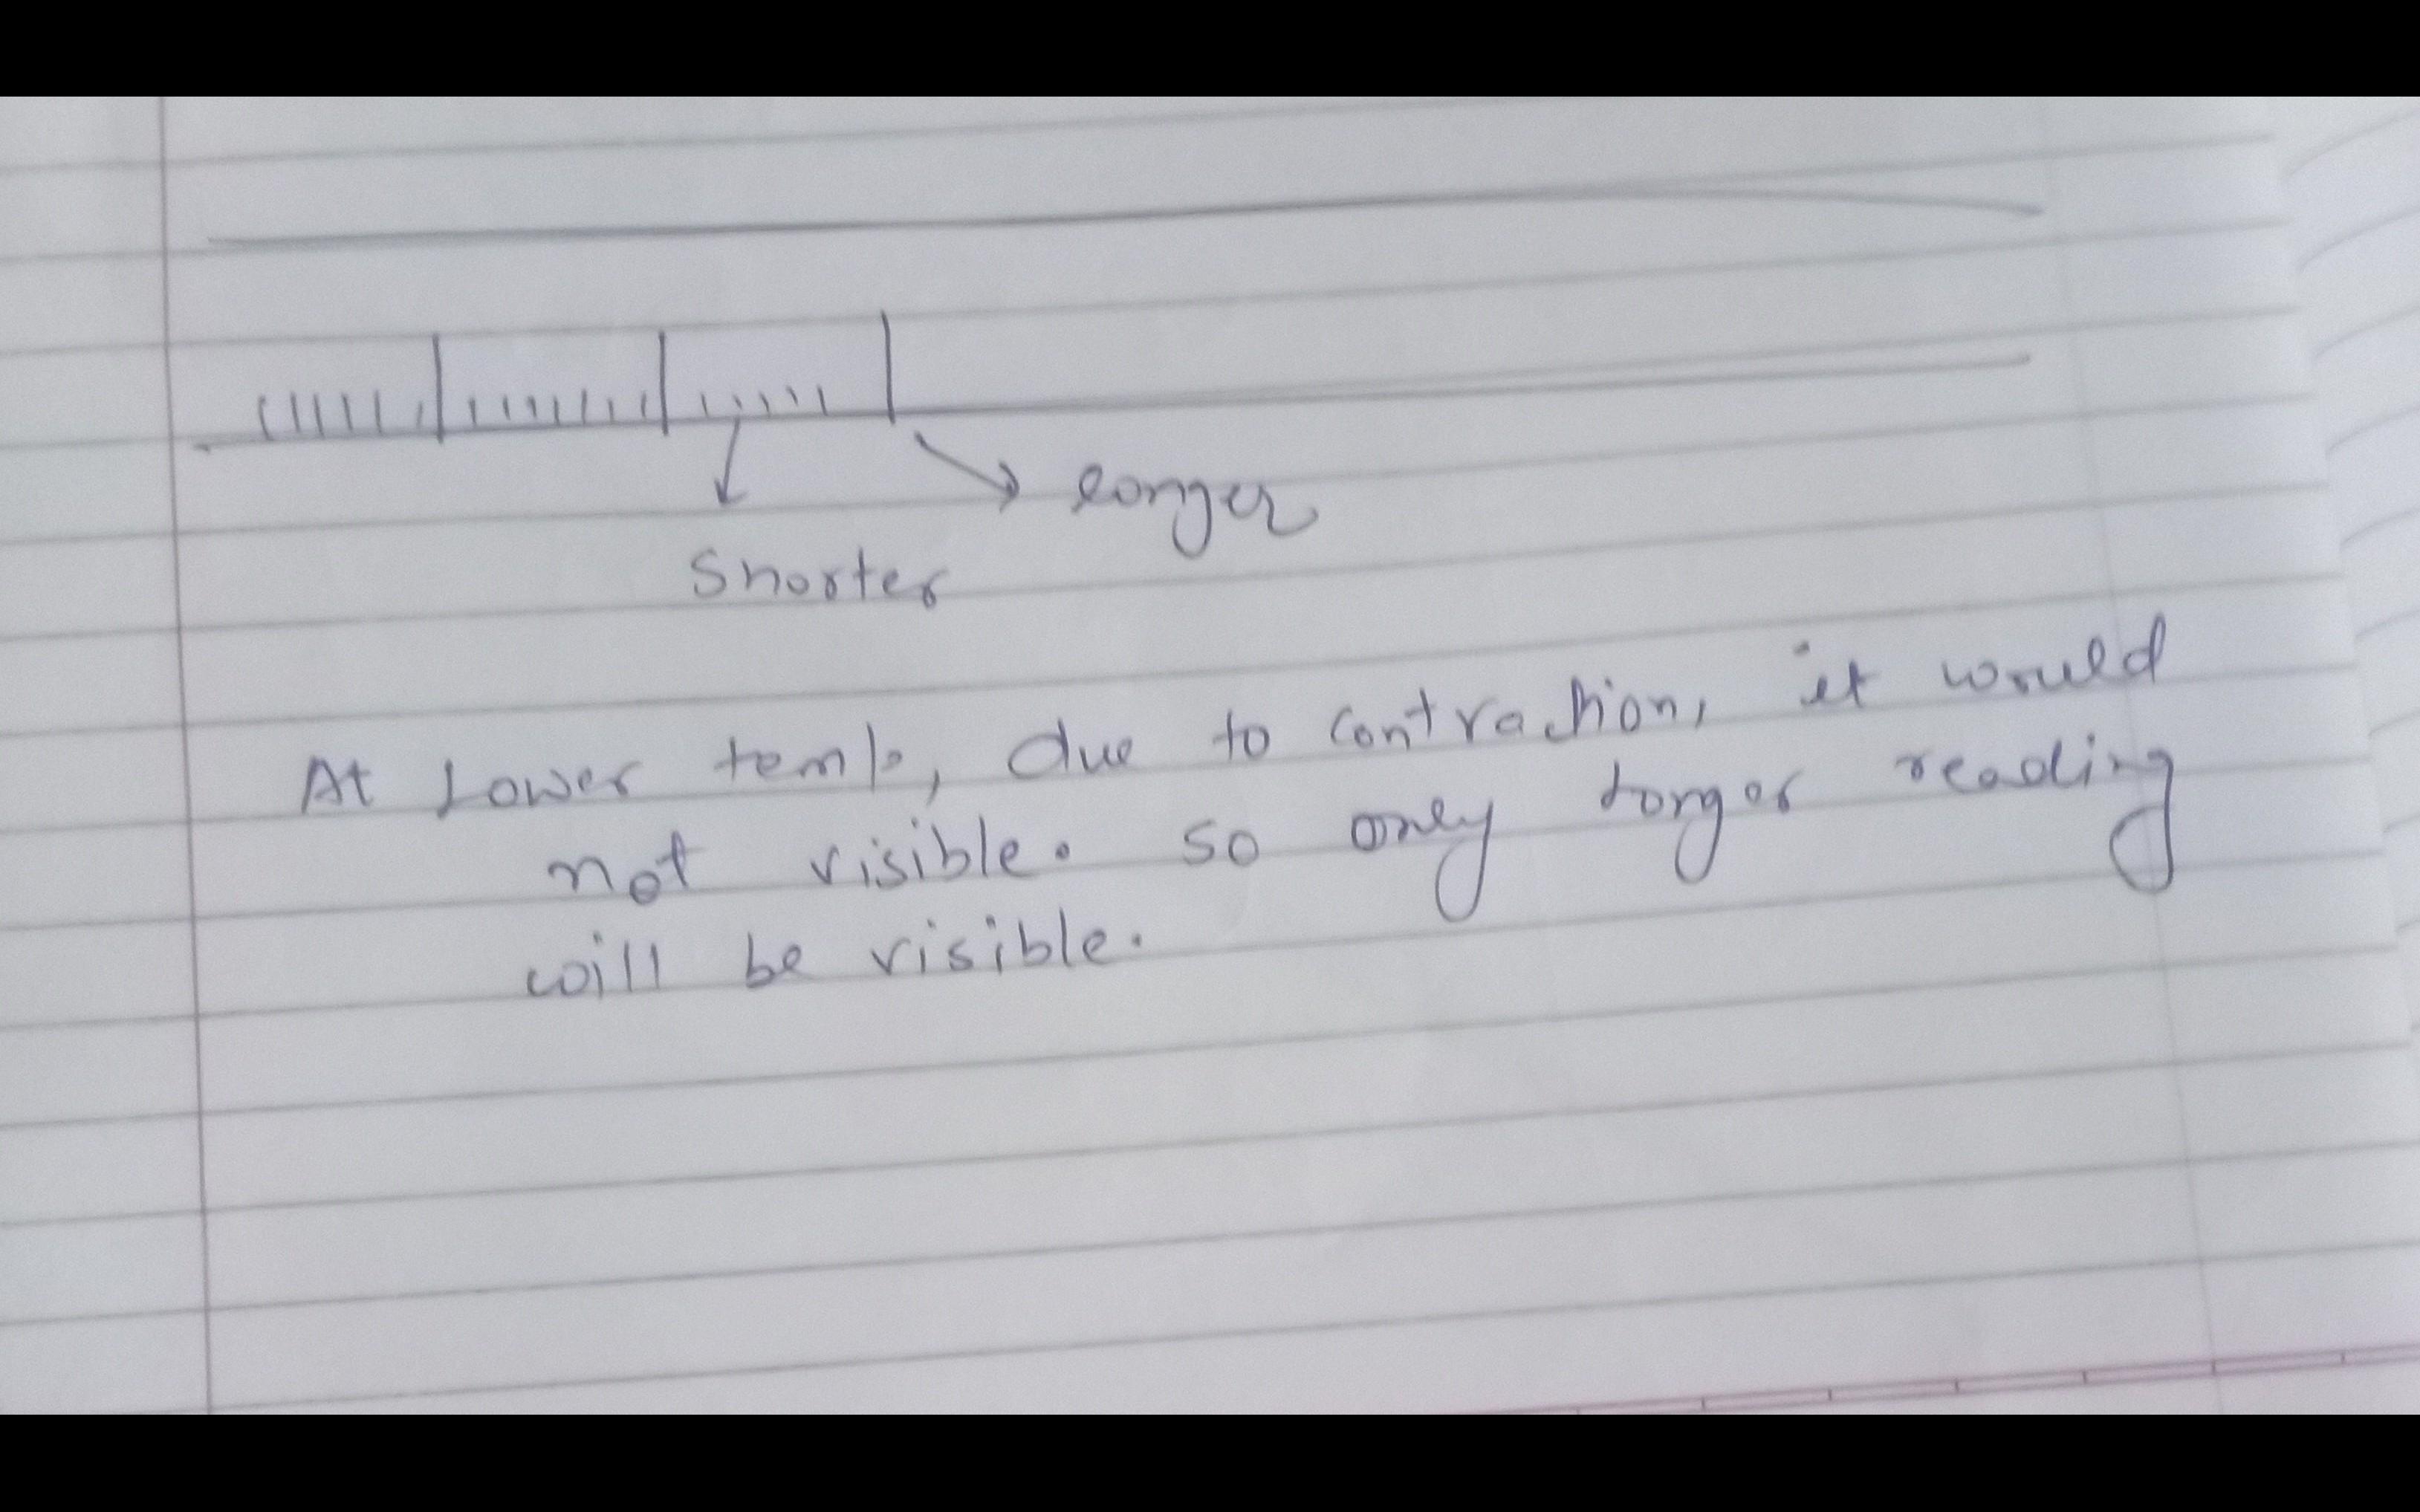 longer
Shorter
At Lower temp, due to contraction, it would
not visible. so only longer reading
will be visible.